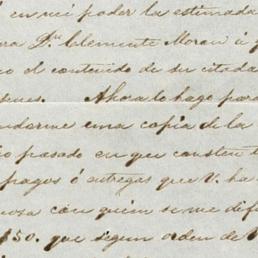 en mi poder la estimada
Dn. Clemente Moran á q
el contenido de su citada
Ahora lo hago para
una copia de la
pasado en que constan l
pagos ó entregas que V. ha
con quien se me dif
$50. que segun orden de